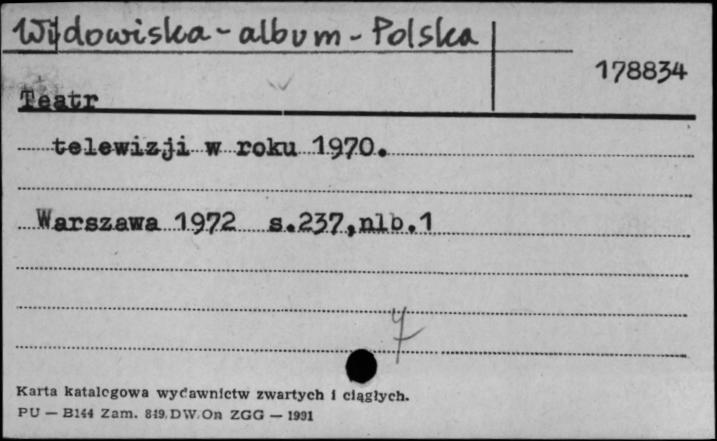 Widowiska - album - Polska
178834
Teatr
telewizji w roku 1970.
Warszawa 1972 s.237,nlb.1
7
Karta katalogowa wydawnictw zwartych i ciągłych.
PU — B144 Zam. 849.DW.On ZGG — 1991